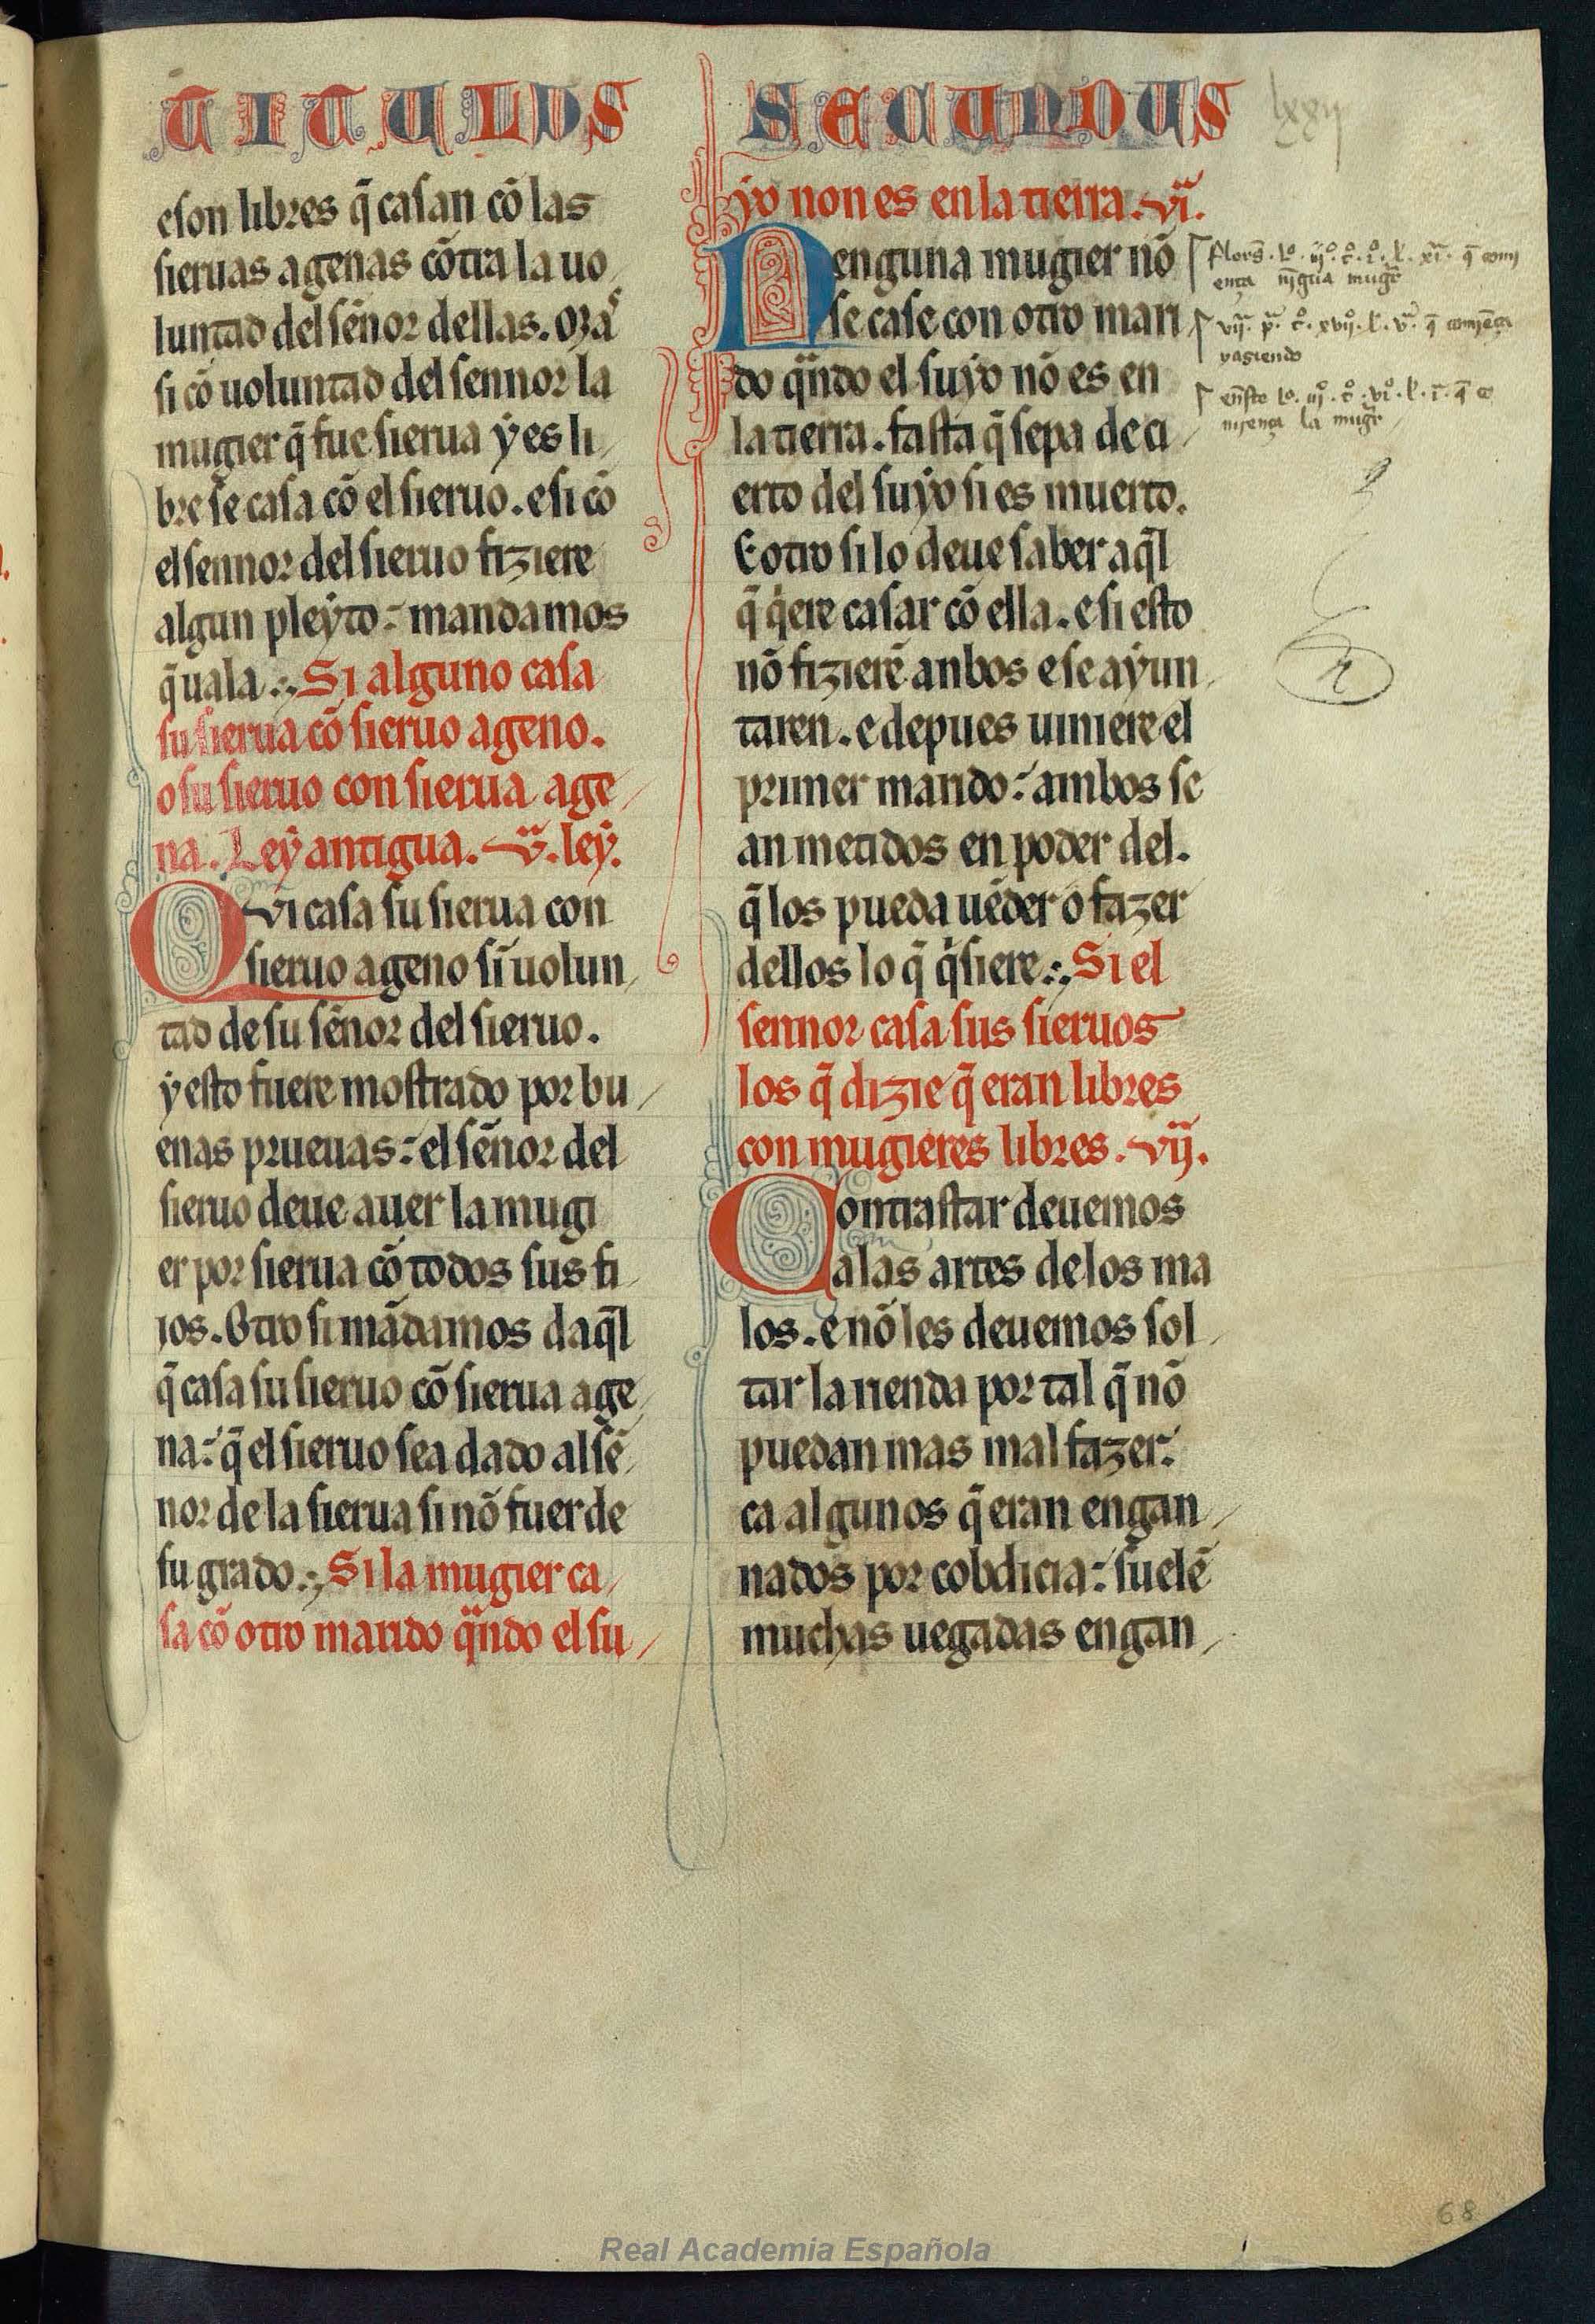 TITULUS SECUNDUS
lxxii
eson libres q̃ casan cõ las
sieruas agenas cõtra la uo
luntad del sẽnor dellas. Mas
si cõ uoluntad del sennor la
mugier q̃ fue sierua ẏ es li
bre se casa cõ el sieruo. e si cõ
el sennor del sieruo fiziere
algun pleẏto: mandamos
q̃ uala. Si alguno casa
su sierua cõ sieruo ageno.
o su sieruo con sierua age
na. Leẏ antigua. v. leẏ.
Qvi casa su sierua con
sieruo ageno sĩ uolun
tad de su sẽnor del sieruo.
ẏ esto fuere mostrado por bu
enas prueuas: el sẽnor del
sieruo deue auer la mugi
er por sierua cõ todos sus fi
ios. Otro si mãdamos daq̃l
q̃ casa su sieruo cõ sierua age
na: q̃ el sieruo sea dado al sẽ
nor de la sierua si nõ fuer de
su grado. Si la mugier ca
sa cõ otro marido qᷓndo el su
ẏo non es en la tierra. vi.
Nenguna mugier nõ
se case con otro mari
do qᷓndo el suẏo nõ es en
la tierra. fasta q̃ sepa de ci
erto del suẏo si es muerto.
E otro si lo deue saber aq̃l
q̃ qͥere casar cõ ella. e si esto
nõ fizierẽ anbos e se aẏun
taren. e depues uiniere el
primer marido: ambos se
an metidos en poder del.
q̃ los pueda uẽder o fazer
dellos lo q̃ qͥsiere. Si el
sennor casa sus sieruos
los q̃ dizie q̃ eran libres
con mugieres libres. vij.
Contrastar deuemos
a las artes de los ma
los. e nõ les deuemos sol
tar la rienda por tal q̃ nõ
puedan mas mal fazer.
ca algunos q̃ eran engan
nados por cobdicia: suelẽ
muchas uegadas engan
xi. q̃ comi
ença nĩgua mugr̃
vij. p̃. t̊. xvij. l. v. q̃ comiẽça
yasiendo
l. i. q̃ co
miença la mugr̃
68
Real Academia Española